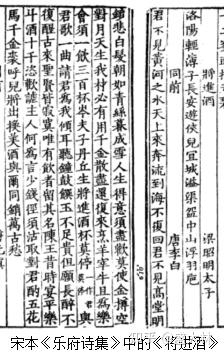 將進酒
梁昭明太子
洛陽輕薄子長安遊俠兒宜城溢渠盌中山浮羽卮
同前
唐李白
君不見黃河之水天上來奔流到海不復回君不見高堂明
鏡悲白髮朝如青絲暮成雪人生得意須盡歡莫使金樽空
對月天生我材必有用千金散盡還復來烹羊宰牛且為樂
會須一飲三百杯岑夫子丹丘生將進酒杯莫停與
君歌一曲請君為我傾耳聽鐘鼓饌玉不足貴但願長醉不
復醒古來聖賢皆寂寞唯有飲者留其名陳王昔時宴平樂
斗酒十千恣歡謔主人何為言少錢徑須沽取對君酌五花
馬千金裘呼兒將出換美酒與爾同銷萬古愁
宋本《乐府诗集》中的《将进酒》